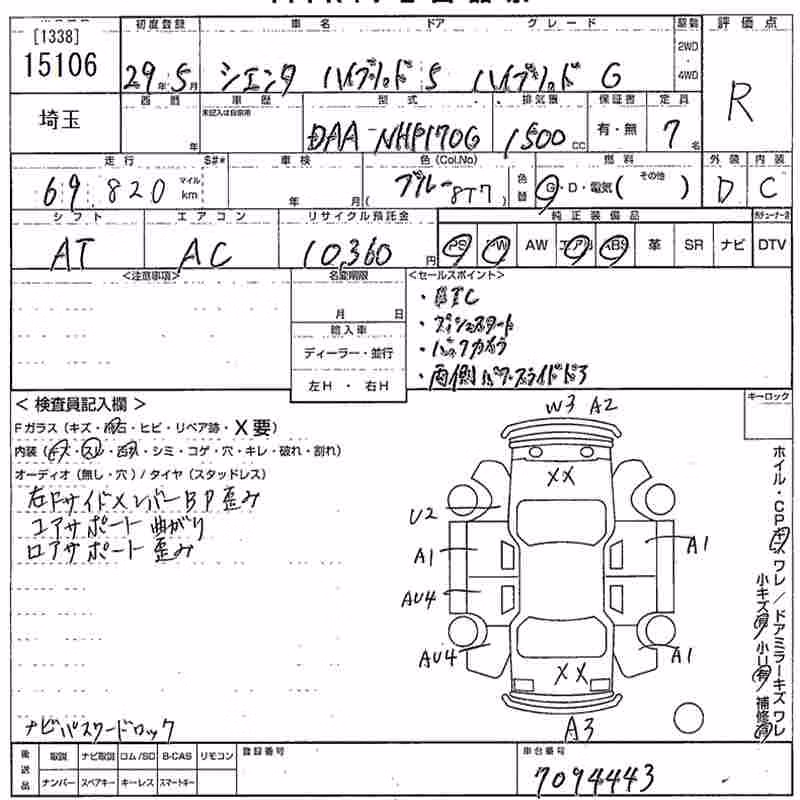 [1338]
15106
初度登録
車名
ドア
グレード
駆動
評価点
29年5月
シエンタ ハイブリッド 5 ハイブリッド G
2WD
・
4WD
R
埼玉
西暦
年
車歴
未記入は自家用
型式
DAA-NHP170G
排気量
1500cc
保証書
有・無
定員
7名
走行
S#*
69,820
マイル
km
車検
年 月
色(Col.No)
ブルー 8T7
色替
燃料
G・D・電気( その他 )
外装
D
内装
C
シフト
AT
エアコン
AC
リサイクル預託金
10,360円
純正装備品
PS PW AW エアB ABS 革 SR ナビ DTV
<注意事項>
名変期限
月 日
輸入車
ディーラー・並行
左H・右H
<セールスポイント>
・ETC
・プッシュスタート
・バックカメラ
・両側パワースライドドア
キーロック
<検査員記入欄>
Fガラス(キズ・飛石・ヒビ・リペア跡・X要)
内装(キズ・スレ・凹み・シミ・コゲ・穴・キレ・破れ・割れ)
オーディオ(無し・穴)/タイヤ(スタッドレス)
右Fサイドメンバー BP歪み
コアサポート 曲がり
ロアサポート 歪み
W3 A2
XX
U2
A1
A1
AU4
AU4
A1
XX
A3
ホイル・CPキズ ワレ/ドアミラーキズ ワレ
小キズ有 小凹有 補修有
ナビパスワードロック
後送品
取説 ナビ取説 ロム/SD B-CAS リモコン
ナンバー スペアキー キーレス スマートキー
登録番号
車台番号
7094443